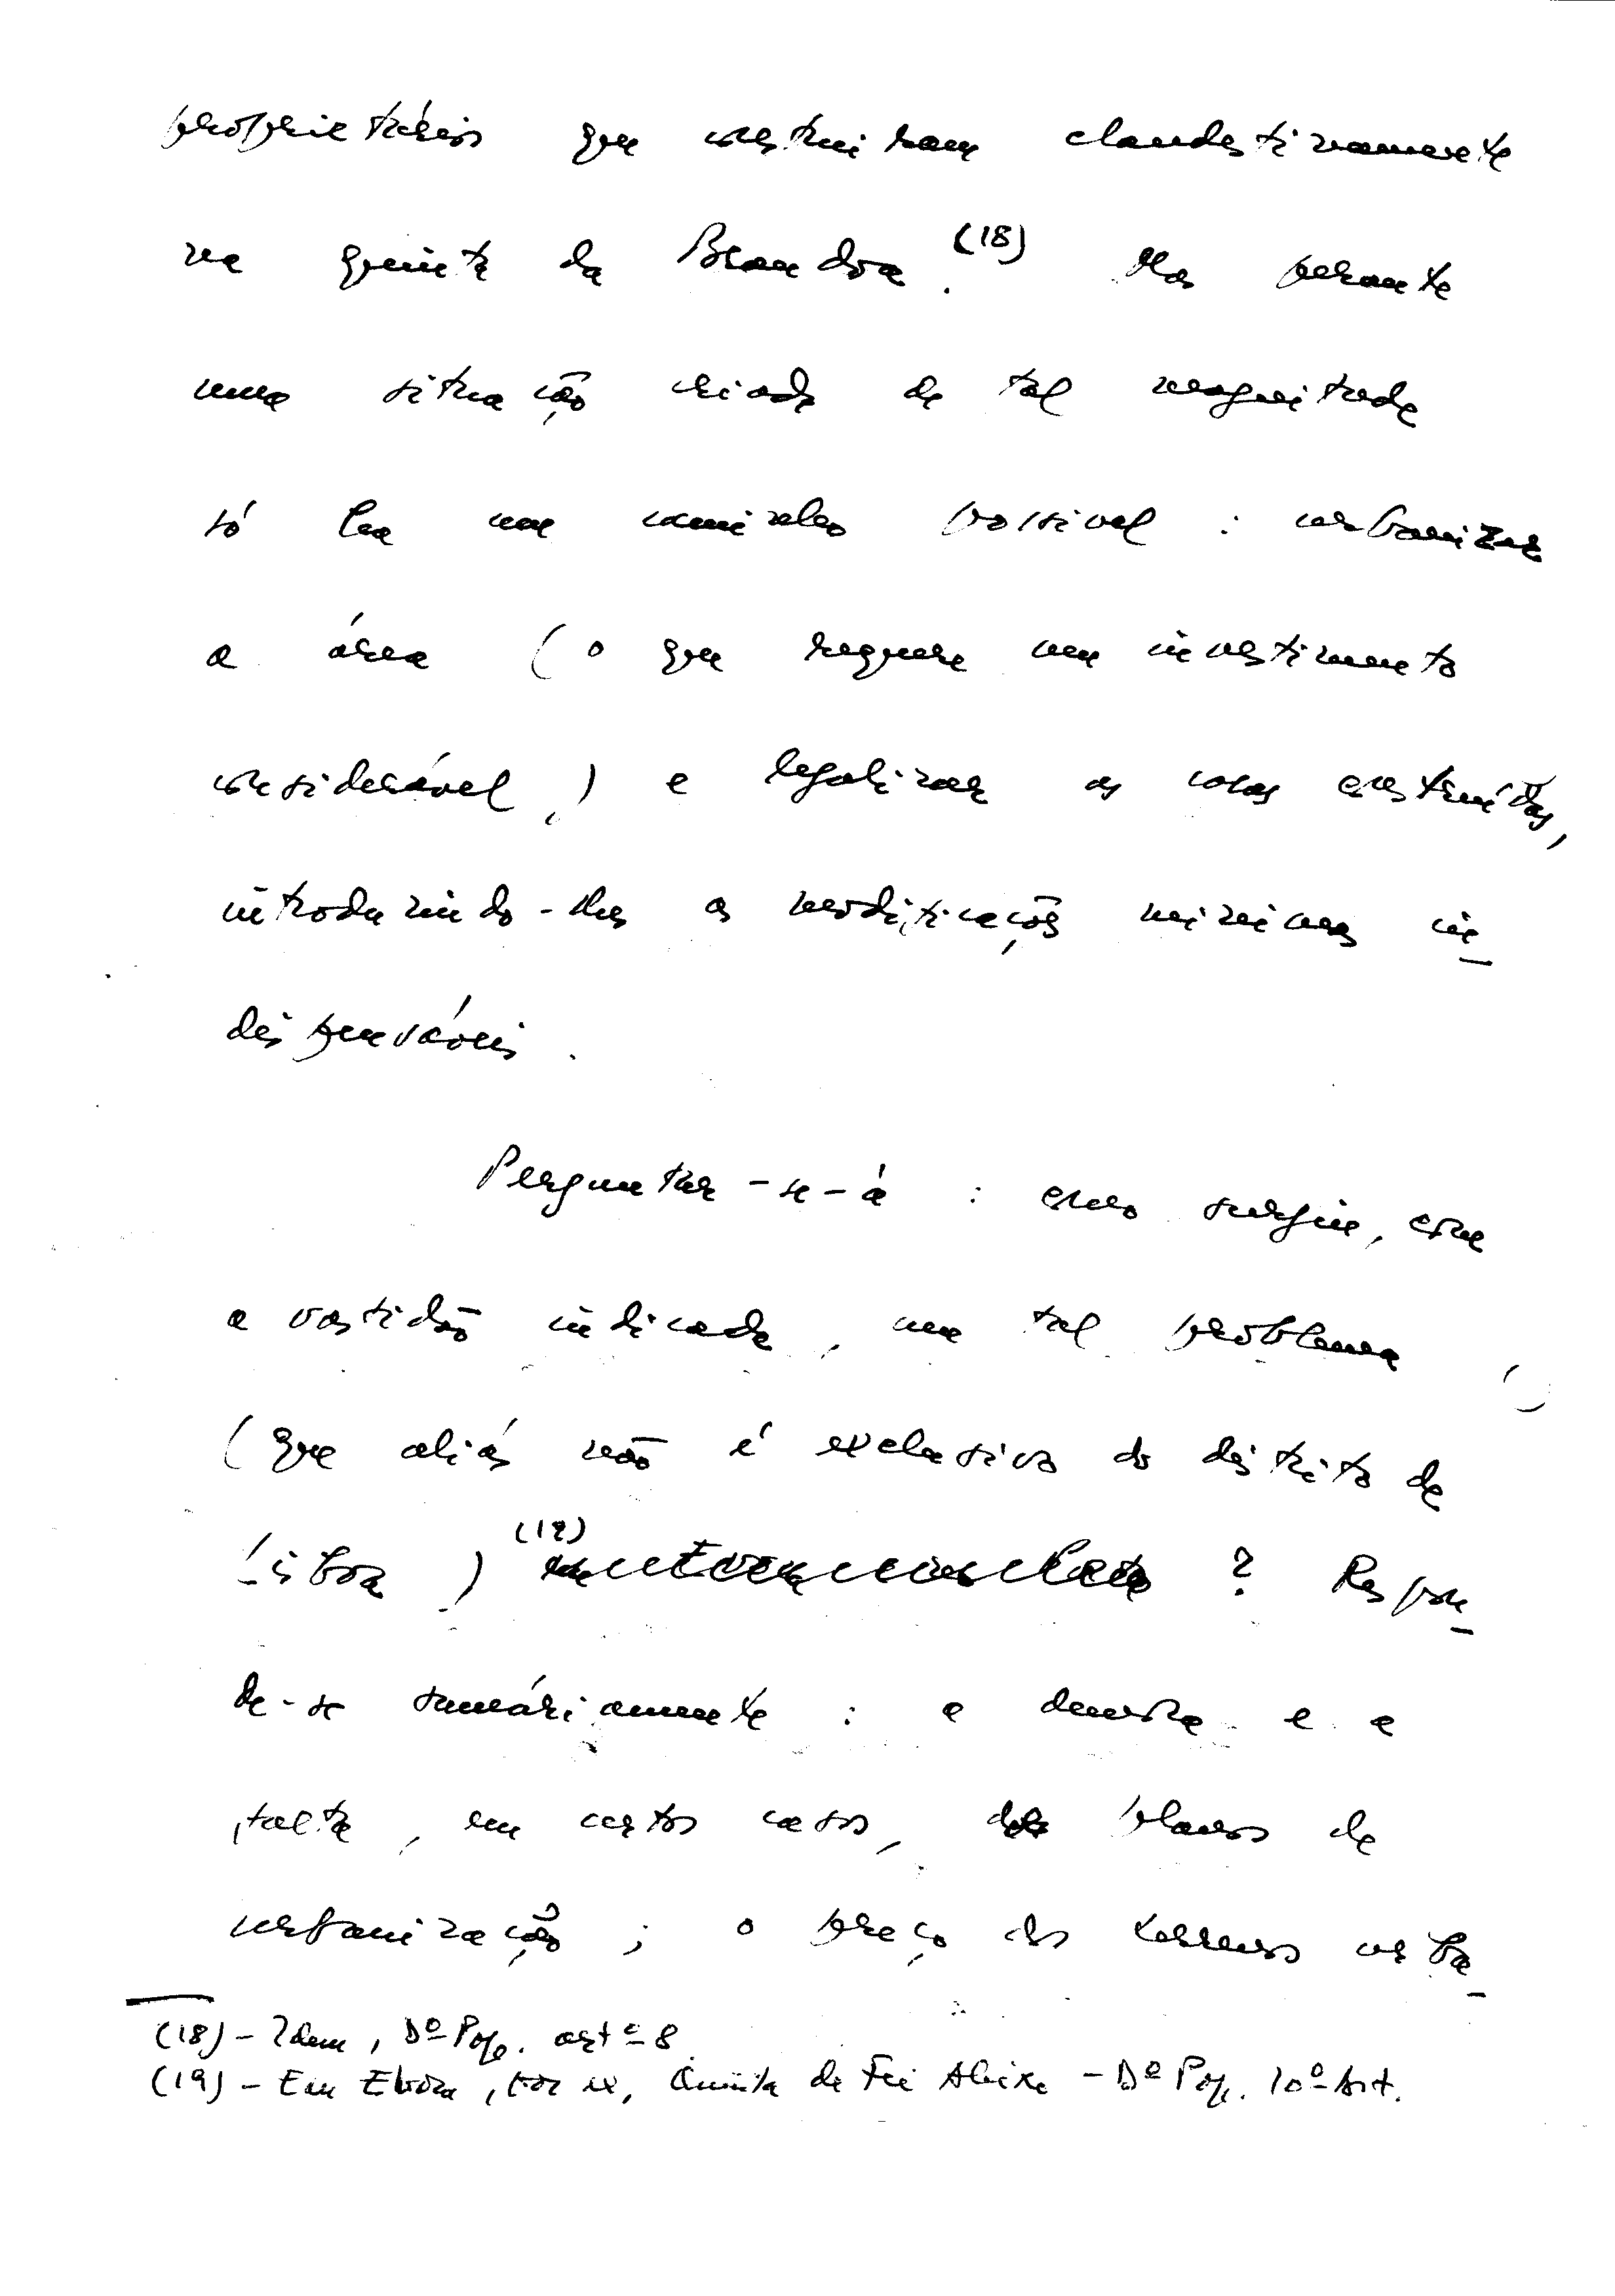 proprietários que construiram clandestinamente
na quinta da Brandoa.(18) Mas perante
uma situação criada de tal magnitude
só há um caminho possível : urbanizar
a área (o que requere um investimento
considerável,) e legalizar as casas construídas,
introduzindo-lhes as modificações mínimas in-
dispensáveis.
Perguntar-se-á : como surgiu, com
a vastidão indicada, um tal problema
(que aliás não é exclusivo do distrito de
Lisboa)(19) ? Respon-
de-se sumáriamente : a demora e a
falta, em certos casos, de planos de
urbanização ; o preço dos terrenos urba-
(18) - Idem, Dº Pop. artº 8
(19) - Em Évora, por ex, Quinta de Frei Aleixo - Dº Pop. 10º Art.